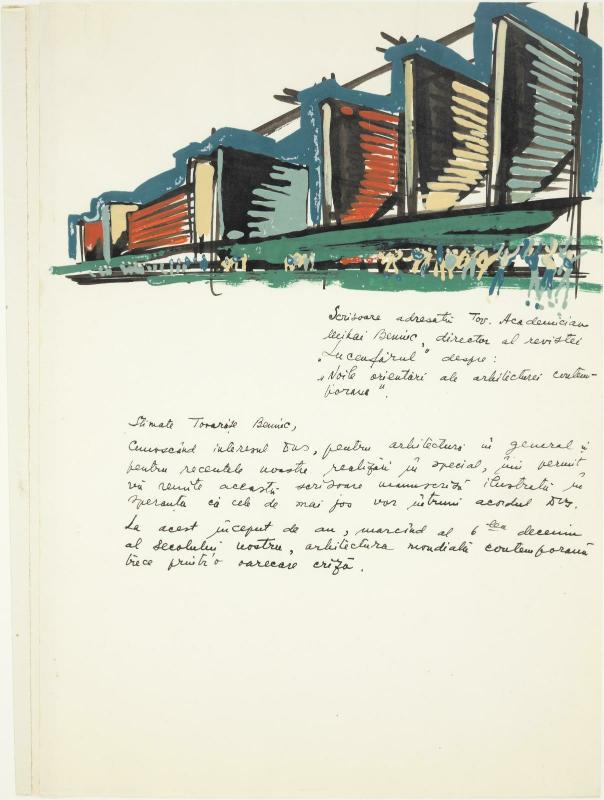 Scrisoare adresată Tov. Academician
Mihai Beniuc, director al revistei
„Luceafărul" despre:
„Noile orientări ale arhitecturei contem-
porane".
Stimate Tovarășe Beniuc,
Cunoscând interesul DVS, pentru arhitectură în general și
pentru recentele noastre realizări în special, îmi permit
vă remite această scrisoare manuscrisă ilustrată în
speranța că cele de mai jos vor întruni acordul DVS.
La acest început de an, marcând al 6 lea deceniu
al secolului nostru, arhitectura mondială contemporană
trece printr'o oarecare criză.